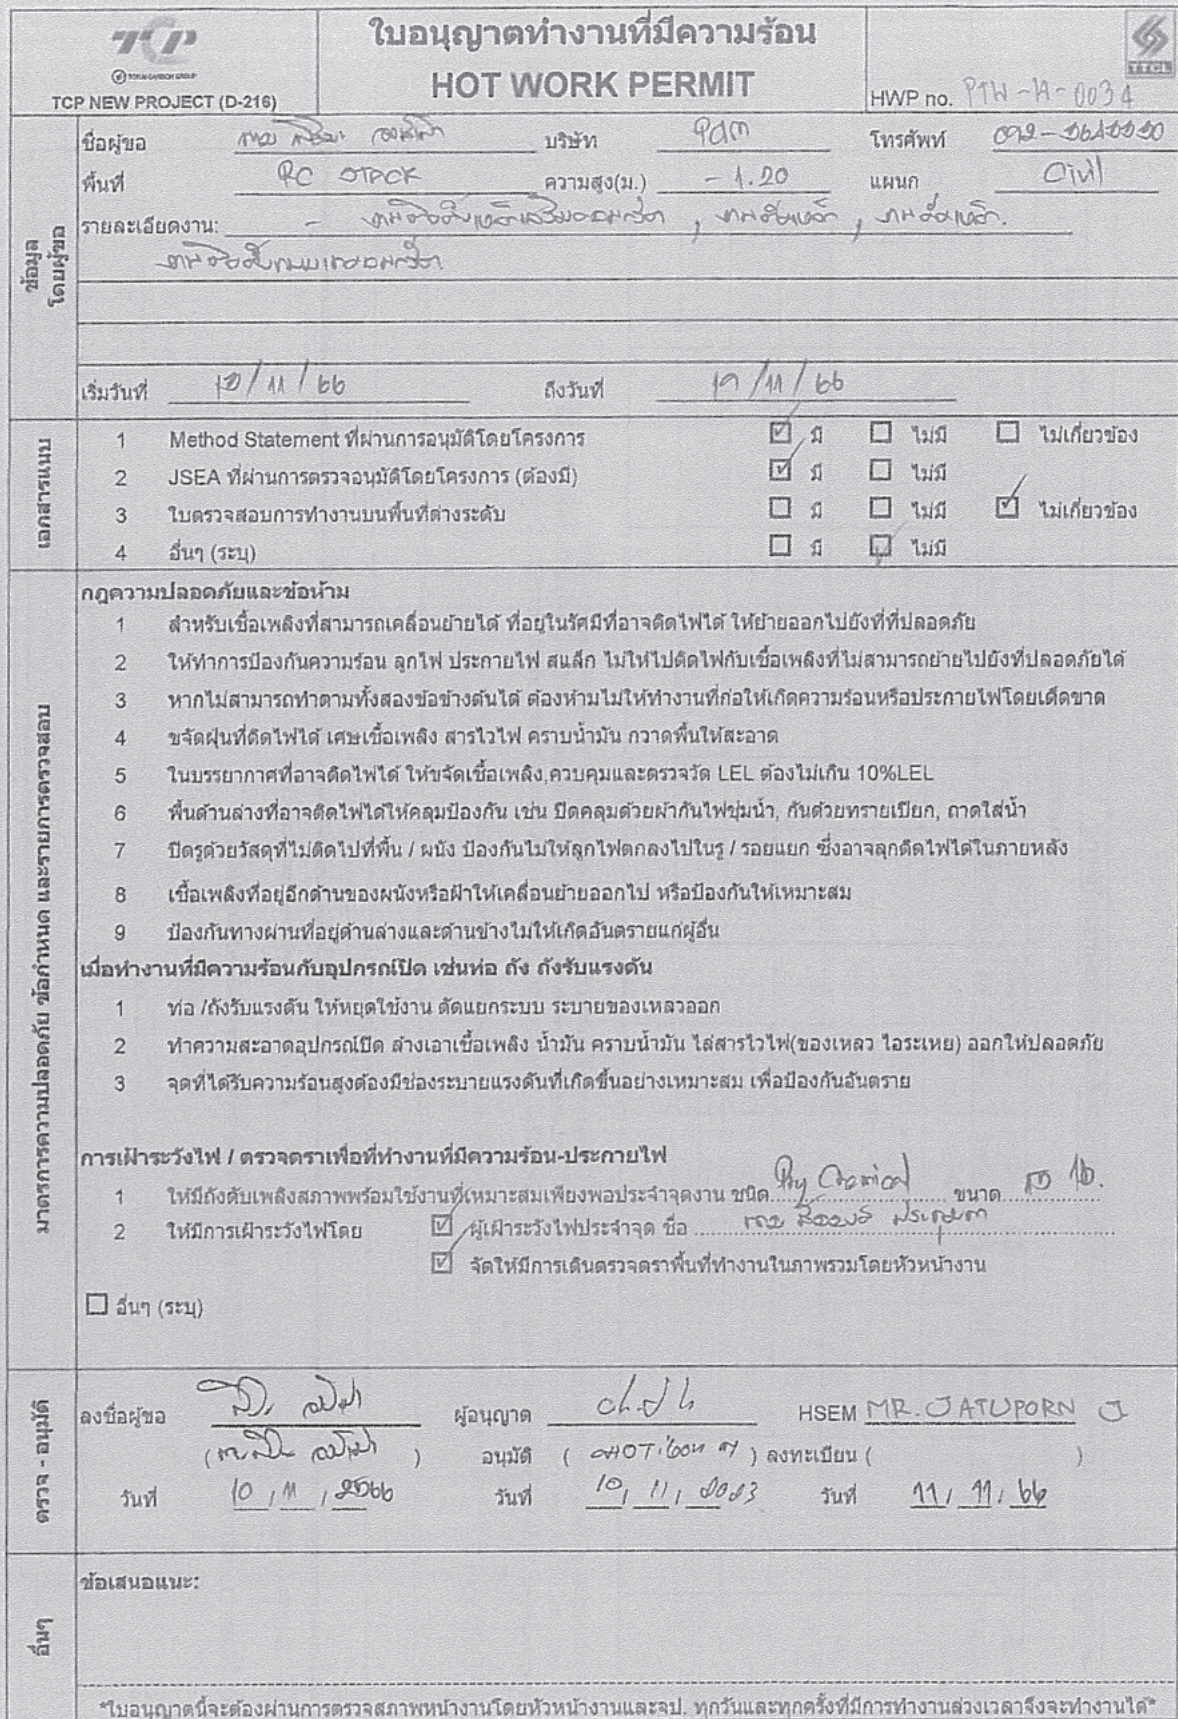 TCP
TOKAI CARBON GROUP
TCP NEW PROJECT (D-216)
ใบอนุญาตทำงานที่มีความร้อน
HOT WORK PERMIT
TTCL
HWP no. PTW-H-0034
ข้อมูลโดยผู้ขอ
ชื่อผู้ขอ บริษัท PDM โทรศัพท์
พื้นที่ RC STACK ความสูง(ม.) - 1.20 แผนก Civil
รายละเอียดงาน: - งานติดตั้งเหล็กเสริมคอนกรีต , งานเชื่อมเหล็ก , งานตัดเหล็ก.
เริ่มวันที่ 10/11/66 ถึงวันที่ 19/11/66
เอกสารแนบ
1 Method Statement ที่ผ่านการอนุมัติโดยโครงการ ☑ มี ☐ ไม่มี ☐ ไม่เกี่ยวข้อง
2 JSEA ที่ผ่านการตรวจอนุมัติโดยโครงการ (ต้องมี) ☑ มี ☐ ไม่มี
3 ใบตรวจสอบการทำงานบนพื้นที่ต่างระดับ ☐ มี ☐ ไม่มี ☑ ไม่เกี่ยวข้อง
4 อื่นๆ (ระบุ) ☐ มี ☑ ไม่มี
มาตรการความปลอดภัย ข้อกำหนด และรายการตรวจสอบ
กฎความปลอดภัยและข้อห้าม
1 สำหรับเชื้อเพลิงที่สามารถเคลื่อนย้ายได้ ที่อยู่ในรัศมีที่อาจติดไฟได้ ให้ย้ายออกไปยังที่ที่ปลอดภัย
2 ให้ทำการป้องกันความร้อน ลูกไฟ ประกายไฟ สแล็ก ไม่ให้ไปติดไฟกับเชื้อเพลิงที่ไม่สามารถย้ายไปยังที่ปลอดภัยได้
3 หากไม่สามารถทำตามทั้งสองข้อข้างต้นได้ ต้องห้ามไม่ให้ทำงานที่ก่อให้เกิดความร้อนหรือประกายไฟโดยเด็ดขาด
4 ขจัดฝุ่นที่ติดไฟได้ เศษเชื้อเพลิง สารไวไฟ คราบน้ำมัน กวาดพื้นให้สะอาด
5 ในบรรยากาศที่อาจติดไฟได้ ให้ขจัดเชื้อเพลิง,ควบคุมและตรวจวัด LEL ต้องไม่เกิน 10%LEL
6 พื้นด้านล่างที่อาจติดไฟได้ให้คลุมป้องกัน เช่น ปิดคลุมด้วยผ้ากันไฟชุ่มน้ำ, กันด้วยทรายเปียก, ถาดใส่น้ำ
7 ปิดรูด้วยวัสดุที่ไม่ติดไปที่พื้น / ผนัง ป้องกันไม่ให้ลูกไฟตกลงไปในรู / รอยแยก ซึ่งอาจลุกติดไฟได้ในภายหลัง
8 เชื้อเพลิงที่อยู่อีกด้านของผนังหรือฝ้าให้เคลื่อนย้ายออกไป หรือป้องกันให้เหมาะสม
9 ป้องกันทางผ่านที่อยู่ด้านล่างและด้านข้างไม่ให้เกิดอันตรายแก่ผู้อื่น
เมื่อทำงานที่มีความร้อนกับอุปกรณ์ปิด เช่นท่อ ถัง ถังรับแรงดัน
1 ท่อ /ถังรับแรงดัน ให้หยุดใช้งาน ตัดแยกระบบ ระบายของเหลวออก
2 ทำความสะอาดอุปกรณ์ปิด ล้างเอาเชื้อเพลิง น้ำมัน คราบน้ำมัน ไล่สารไวไฟ(ของเหลว ไอระเหย) ออกให้ปลอดภัย
3 จุดที่ได้รับความร้อนสูงต้องมีช่องระบายแรงดันที่เกิดขึ้นอย่างเหมาะสม เพื่อป้องกันอันตราย
การเฝ้าระวังไฟ / ตรวจตราเพื่อที่ทำงานที่มีความร้อน-ประกายไฟ
1 ให้มีถังดับเพลิงสภาพพร้อมใช้งานที่เหมาะสมเพียงพอประจำจุดงาน ชนิด Dry Chemical ขนาด
2 ให้มีการเฝ้าระวังไฟโดย ☑ ผู้เฝ้าระวังไฟประจำจุด ชื่อ
☑ จัดให้มีการเดินตรวจตราพื้นที่ทำงานในภาพรวมโดยหัวหน้างาน
☐ อื่นๆ (ระบุ)
ตรวจ - อนุมัติ
ลงชื่อผู้ขอ ผู้อนุญาต HSEM MR. JATUPORN J
( ) อนุมัติ ( ) ลงทะเบียน ( )
วันที่ 10 / 11 / 2566 วันที่ 10 / 11 / 2023 วันที่ 11 / 11 / 66
อื่นๆ
ข้อเสนอแนะ:
*ใบอนุญาตนี้จะต้องผ่านการตรวจสภาพหน้างานโดยหัวหน้างานและจป. ทุกวันและทุกครั้งที่มีการทำงานล่วงเวลาจึงจะทำงานได้*